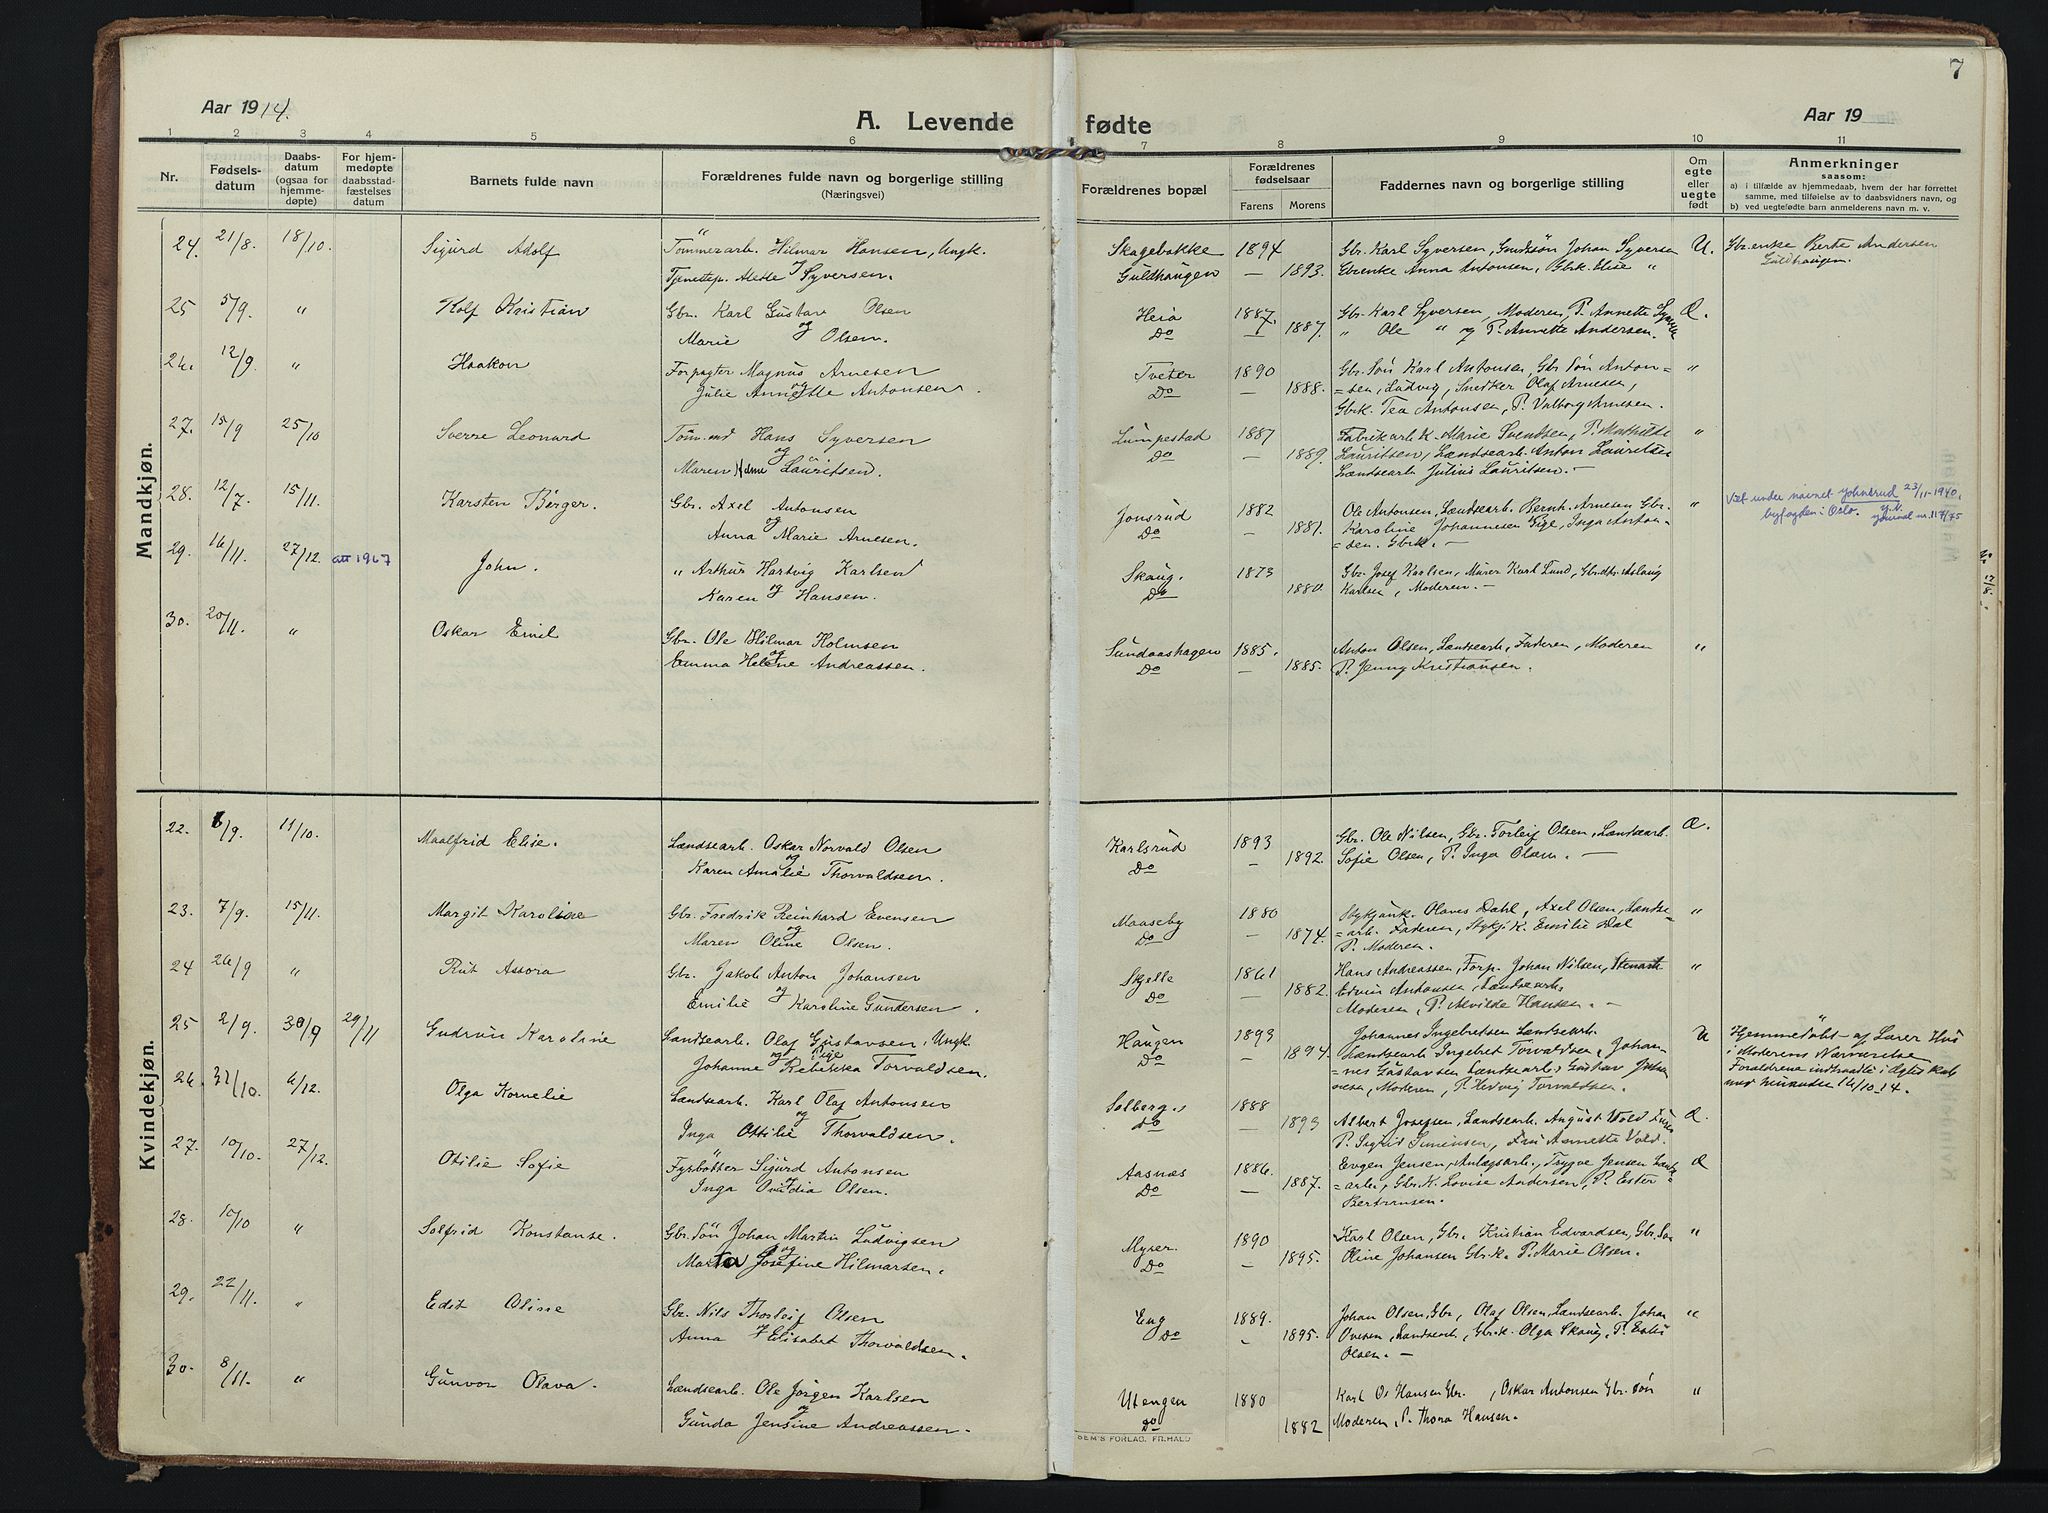 7
Aar 1914.
A. Levende fødte
Aar 19
1 2 3 4 5 6 7 8 9 10 11
Nr.
Fødsels-
datum
Daabs-
datum
(ogsaa for
hjemme-
døpte)
For hjem-
medøpte
daabsstad-
fæstelses
datum
Barnets fulde navn
Forældrenes fulde navn og borgerlige stilling
(Næringsvei)
Forældrenes bopæl
Forældrenes
fødselsaar
Farens Morens
Faddernes navn og borgerlige stilling
Om
egte
eller
uegte
født
Anmerkninger
saasom:
a) i tilfælde av hjemmedaab, hvem der har forrettet
samme, med tilføielse av to daabsvidners navn, og
b) ved uegtefødt barn anmelderens navn m. v.
Mandkjøn.
24. 21/8. 18/10. Sigurd Adolf Tømmerarb. Hilmar Hansen, Ungk. Skagebakke 1894 Gbr. Karl Syversen, Johan Syversen U. Gbr.enke Berte Andersen
Tjenestep. Alette Syversen. Guldhaugen — 1893. Gbrenke Anna Antonsen, Gbrk. Elise " Guldhaugen.
25 5/9. " Rolf Kristian Gbr. Karl Gustav Olsen Heia 1887. Gbr. Karl Syversen, Moderen, P. Annette
og Marie Olsen. Do — 1887. " Ole " og P. Annette Andersen.
26. 12/9. " Haakon Forpagter Magnus Arnesen Tveter 1890 Gbr. Søn Karl Antonsen, Gbr Søn Anton= "
og Julie Annette Antonsen. Do — 1888. =sen, Ludvig, Snedker Olaf Arnesen,
Gbrk. Tea Antonsen, P. Valborg Arnesen.
27. 15/9 25/10 Sverre Leonard Tømmd Hans Syversen Lumpestad 1887 Fabrikarb. K. Marie Svendsen, P. Mathilde "
og Maren Lauritsen. Do — 1889. Lauritsen, Landsearb. Anton Lauritsen
Landsearb Julius Lauritsen. —
28. 12/7. 15/11. Karsten Birger. Gbr. Axel Antonsen Jonsrud 1882 Ole Antonsen, Landsearb. Bernh. Arnesen Gbr. " Viet under navnet Johnsrud 23/11-1940,
og Anna Marie Arnesen. Do — 1881. Karoline Johannesen Pige, Inga Anton= byfogden i Oslo. journal nr. 117/75
=sen. Gbrk. —
29. 16/11. 27/12. att 1967 John. " Arthur Hartvig Karlsen Skaug. 1873 Gbr. Josef Karlsen, Murer Karl Lund, Gbrdtr. Aslaug
og Karen Hansen. Do 1880. Karlsen, Moderen. —
30. 20/11. " Oskar Emil Gbr. Ole Hilmar Holmsen Sundaashagen 1885. Anton Olsen, Landsearb, Faderen, Moderen "
og Emma Helene Andreassen. Do — 1885. P. Jenny Kristiansen.
Kvindekjøn.
22. 6/9. 11/10. Maalfrid Elise. Landsearb. Oskar Norvald Olsen Karlsrud 1893 Gbr. Ole Nilsen, Gbr. Torleif Olsen, Landsearb. Æ.
og Karen Amalie Thorvaldsen. Do — 1892. Sofie Olsen, P. Inga Olsen. —
23. 7/9. 15/11. Margit Karoline Gbr. Fredrik Reinhard Evensen Maaseby 1880 Stykjunk. Olaves Dahl, Axel Olsen, Landse= "
og Maren Oline Olsen. Do — 1874. =arb. Faderen, Emilie Dal
P. Moderen.
24 26/9 " Rut Assora Gbr. Jakob Anton Johansen Skjelle 1861 Hans Andreassen, Forp. Johan Nilsen, Stenarb "
og Emilie Karoline Gundersen. Do — 1882. Edvin Antonsen, Landsearb,
Moderen, P. Alvilde Hansen. —
25 2/9. 30/9 29/11 Gudrun Karoline Landsearb. Olaf Gustavsen, Ungk. Haugen 1893 Johannes Ingebretsen Landsearb. U Hjemmedøbt af Lærer Hus
og Pige Johanne Rebekka Torvaldsen. Do — 1894. Landsearb Ingebret Torvaldsen, Johan= i Moderens Nærværelse
nes Gustavsen Landsearb, Gustav Forældrene indtraadte i Ægteskab
Moderen, P. Hedvig Torvaldsen. 16/10 14.
26. 31/10. 6/12. Olga Kornelie Landsearb. Karl Olaf Antonsen Solberg. 1888
og Inga Ottilie Thorvaldsen. Do — 1893 Albert Josefsen, Landsearb. August Vold Æ.
P. Sigrid Simensen, Fru Annette Vold.
27. 10/10. 27/12. Otilie Sofie Fyrbøtter Sigurd Antonsen Aasnæs 1886. Evgen Jensen, Anlægsarb., Trygve Jensen Landse Æ
Inga Ovidia Olsen. Do — 1887. =arb, Gbr.K. Lovise Andersen, P. Ester
Berntensen.
28. 10/10 " Solfrid Konstanse. Gbr. Søn Johan Martin Ludvigsen Myser. 1890 Karl Olsen, Gbr. Kristian Edvardsen, Gbr. Søn "
og Marta Josefine Hilmarsen. Do — 1895. Oline Johansen Gbr.k. P. Marie Olsen.
29. 22/11. " Edit Oline Gbr. Nils Thorleif Olsen Eng 1889. Johan Olsen, Gbr, Olaf Olsen, Landsearb. Johan "
Anna Elisabet Thorvaldsen. Do — 1895. Ovesen, Landsearb, Gbr.k. Olga Skaug, P.
Olsen. —
30. 8/11. " Gunvor Olava. Landsearb. Ole Jørgen Karlsen Utengen 1880 Karl Os Hansen Gbr. , Oskar Antonsen Gbr. Søn "
og Gunda Jensine Andreassen. Do 1882 Moderen, P. Thora Hansen.
SEM'S FORLAG. FR.HALD